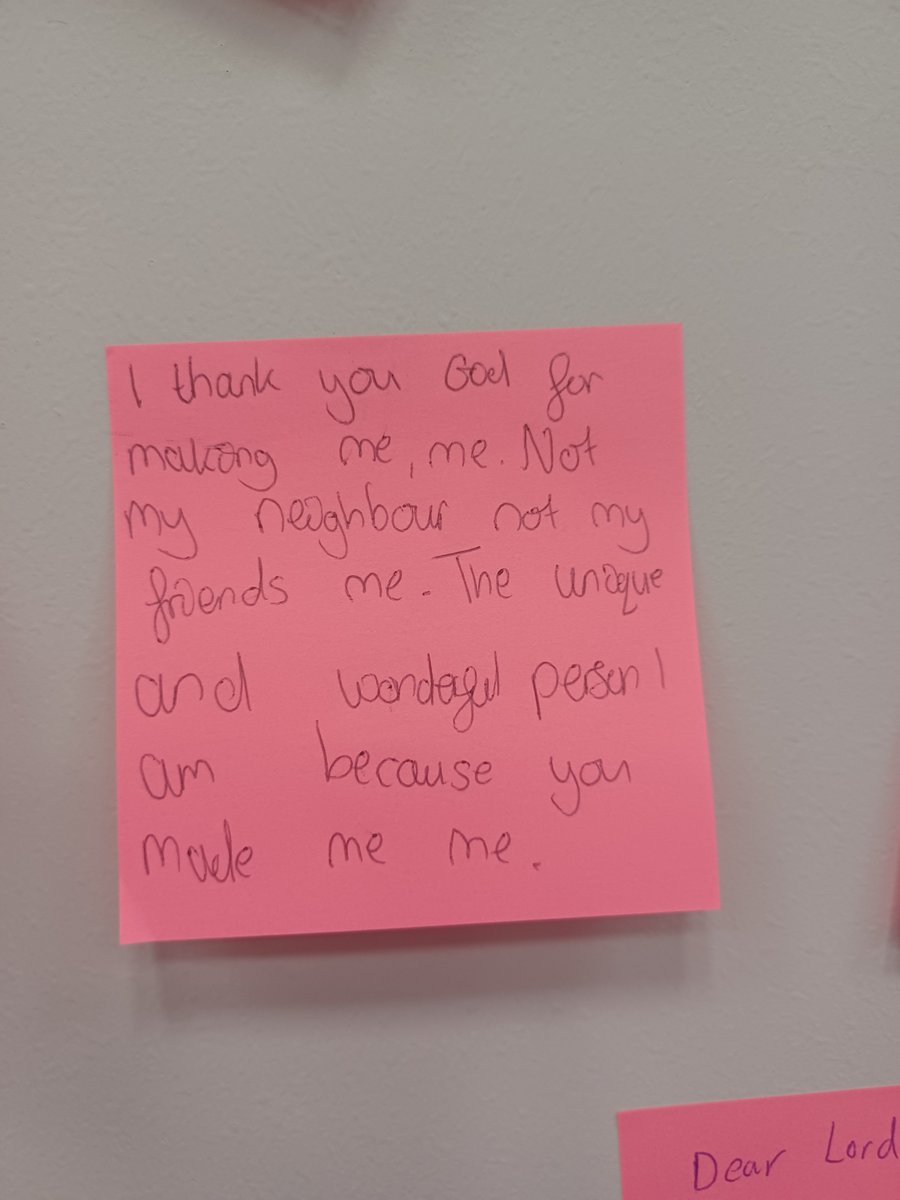 I thank you God for
making me, me. Not
my neighbour not my
friends me. The unique
and wonderful person I
am because you
made me me.
Dear Lord